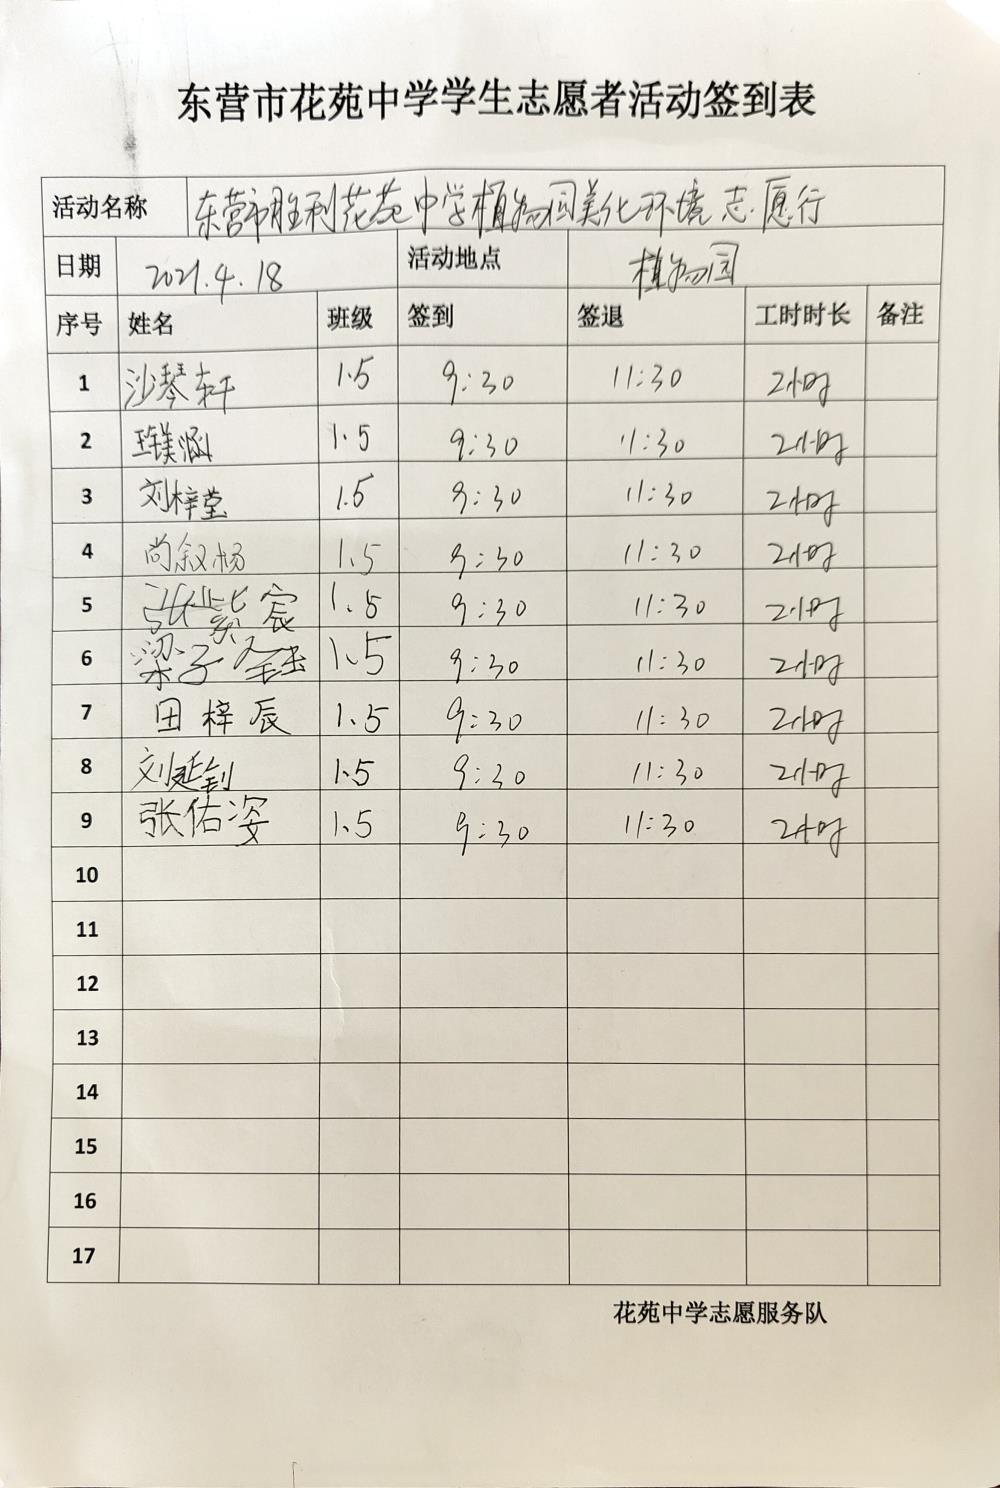 东营市花苑中学学生志愿者活动签到表
活动名称 东营市胜利花苑中学植物园美化环境志愿行
日期 2021.4.18 活动地点 植物园
序号 姓名 班级 签到 签退 工时时长 备注
1 沙琴轩 1.5 9:30 11:30 2小时
2 1.5 9:30 11:30 2小时
3 刘梓莹 1.5 9:30 11:30 2小时
4 尚叙杨 1.5 9:30 11:30 2小时
5 张紫宸 1.5 9:30 11:30 2小时
6 梁子 1.5 9:30 11:30 2小时
7 田梓辰 1.5 9:30 11:30 2小时
8 刘延钊 1.5 9:30 11:30 2小时
9 张佑姿 1.5 9:30 11:30 2小时
10
11
12
13
14
15
16
17
花苑中学志愿服务队